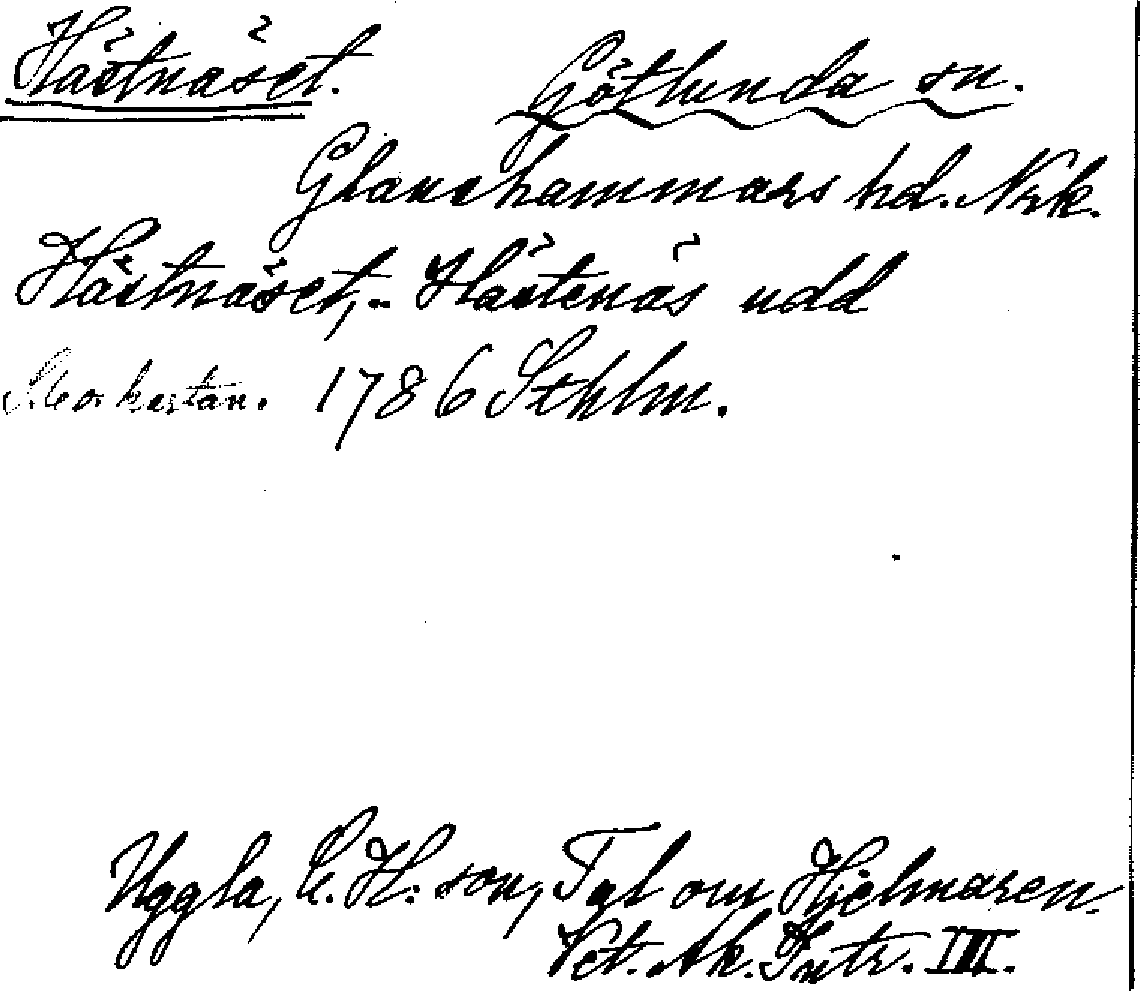 Hästnäset. Götlunda sn.
Glanshammars hd. Nrk.
Hästnäset, - Hästenäs udd
1786 Sthlm.
Uggla, C. H:son, Tal om Hjelmaren.
Vet. Ak. Intr. III.